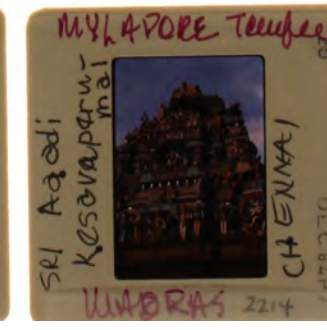 MYLAPORE Temple
SRI Agadi
Kesavaperu-
mal
CHENNAI
MADRAS 2214
DEC84P